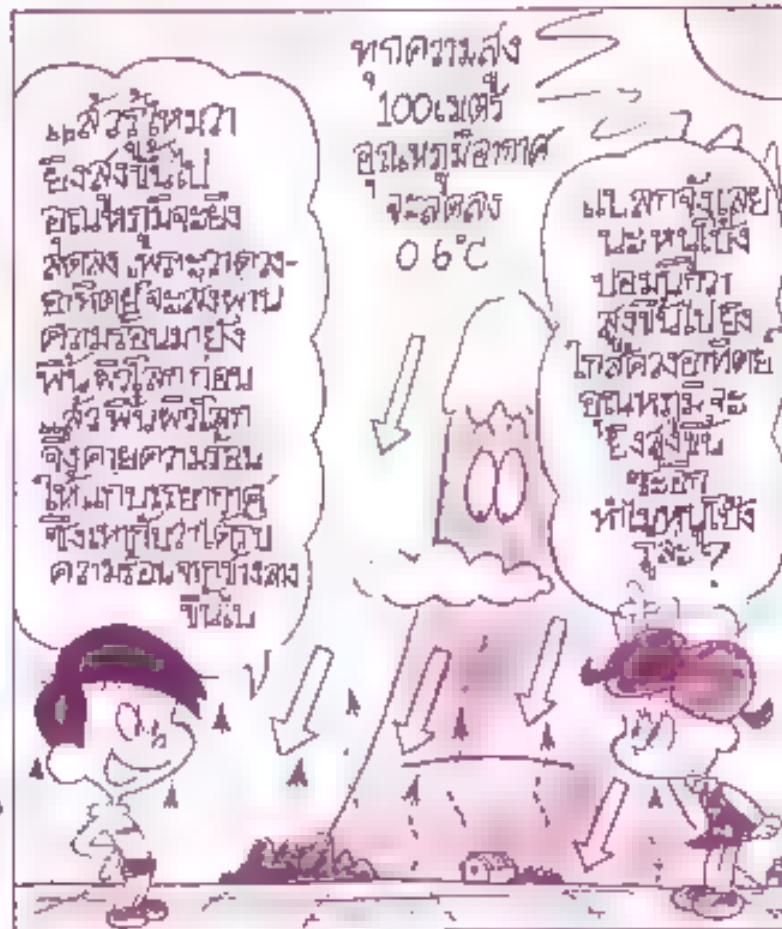 แล้วรู้ไหมว่า
ยิ่งสูงขึ้นไป
อุณหภูมิจะยิ่ง
ลดลง เพราะว่าดวง-
อาทิตย์จะส่งผ่าน
ความร้อนมายัง
พื้นผิวโลกก่อน
แล้วพื้นผิวโลก
จึงคายความร้อน
ให้แก่บรรยากาศ
ซึ่งเท่ากับว่าได้รับ
ความร้อนจากข้างล่าง
ขึ้นไป
ทุกความสูง
100เมตร
อุณหภูมิอากาศ
จะลดลง
0 6°C
แปลกจังเลย
นะหนูโป้ง
ปอมนึกว่า
สูงขึ้นไปยิ่ง
ใกล้ดวงอาทิตย์
อุณหภูมิจะ
ยิ่งสูงขึ้น
ซะอีก